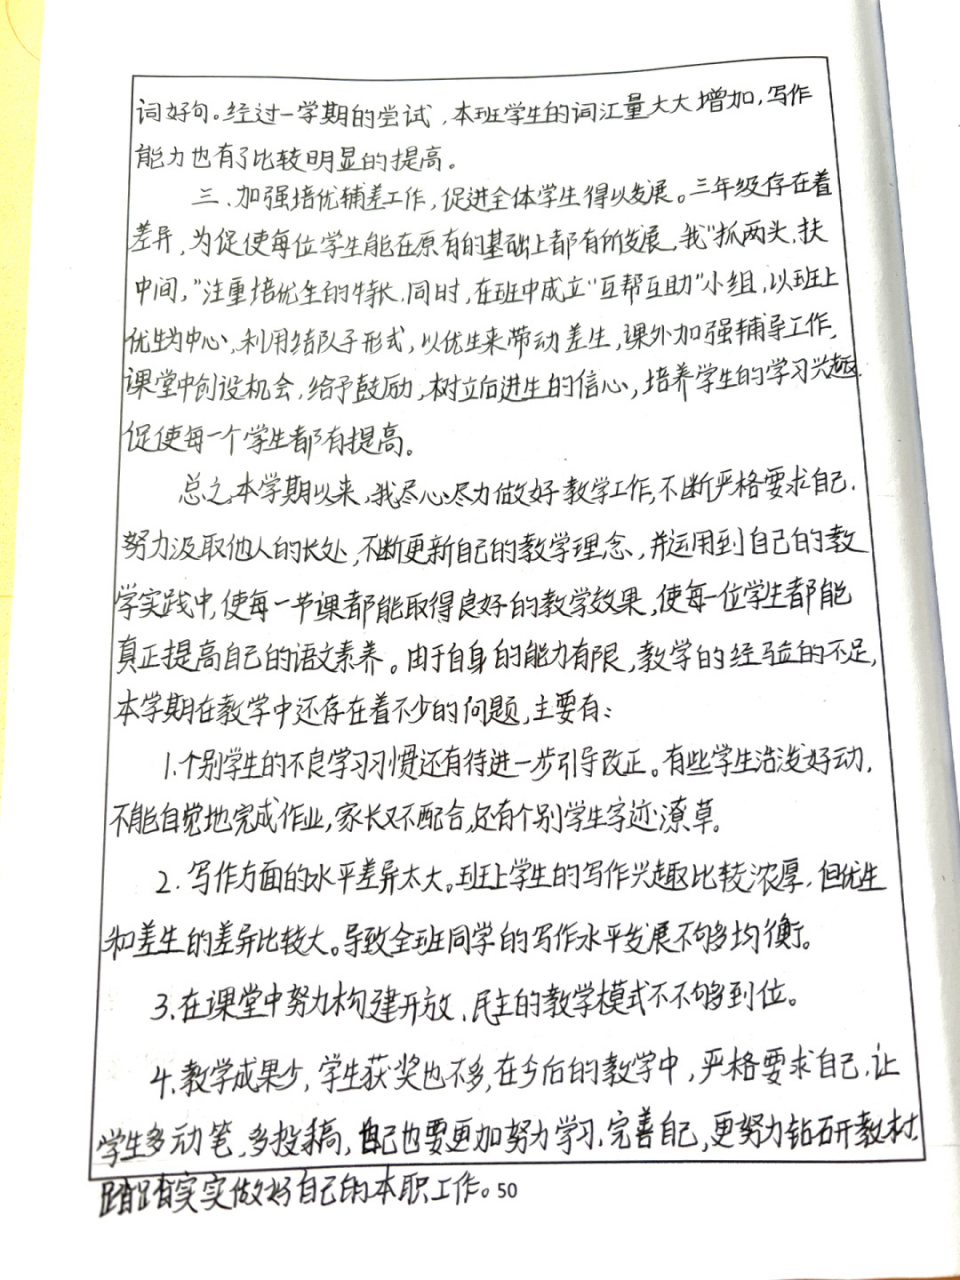 词好句。经过一学期的尝试,本班学生的词汇量大大增加,写作
能力也有了比较明显的提高。
三、加强培优辅差工作,促进全体学生得以发展。三年级存在着
差异,为促使每位学生能在原有的基础上都有所发展,我“抓两头,扶
中间,”注重培优生的特长.同时,在班中成立“互帮互助”小组,以班上
优生为中心,利用结队子形式,以优生来带动差生,课外加强辅导工作,
课堂中创设机会,给予鼓励,树立后进生的信心,培养学生的学习兴趣.
促使每一个学生都有提高。
总之,本学期以来,我尽心尽力做好教学工作,不断严格要求自己.
努力汲取他人的长处,不断更新自己的教学理念,并运用到自己的教
学实践中,使每一节课都能取得良好的教学效果,使每一位学生都能
真正提高自己的语文素养。由于自身的能力有限,教学的经验的不足,
本学期在教学中还存在着不少的问题,主要有:
1.个别学生的不良学习习惯还有待进一步引导改正。有些学生活泼好动,
不能自觉地完成作业,家长又不配合,还有个别学生字迹潦草。
2.写作方面的水平差异太大。班上学生的写作兴趣比较浓厚,但优生
和差生的差异比较大。导致全班同学的写作水平发展不够均衡。
3.在课堂中努力构建开放、民主的教学模式不不够到位。
4.教学成果少,学生获奖也不多,在今后的教学中,严格要求自己,让
学生多动笔,多投稿,自己也要更加努力学习,完善自己,更努力钻研教材,
踏踏实实做好自己的本职工作。50